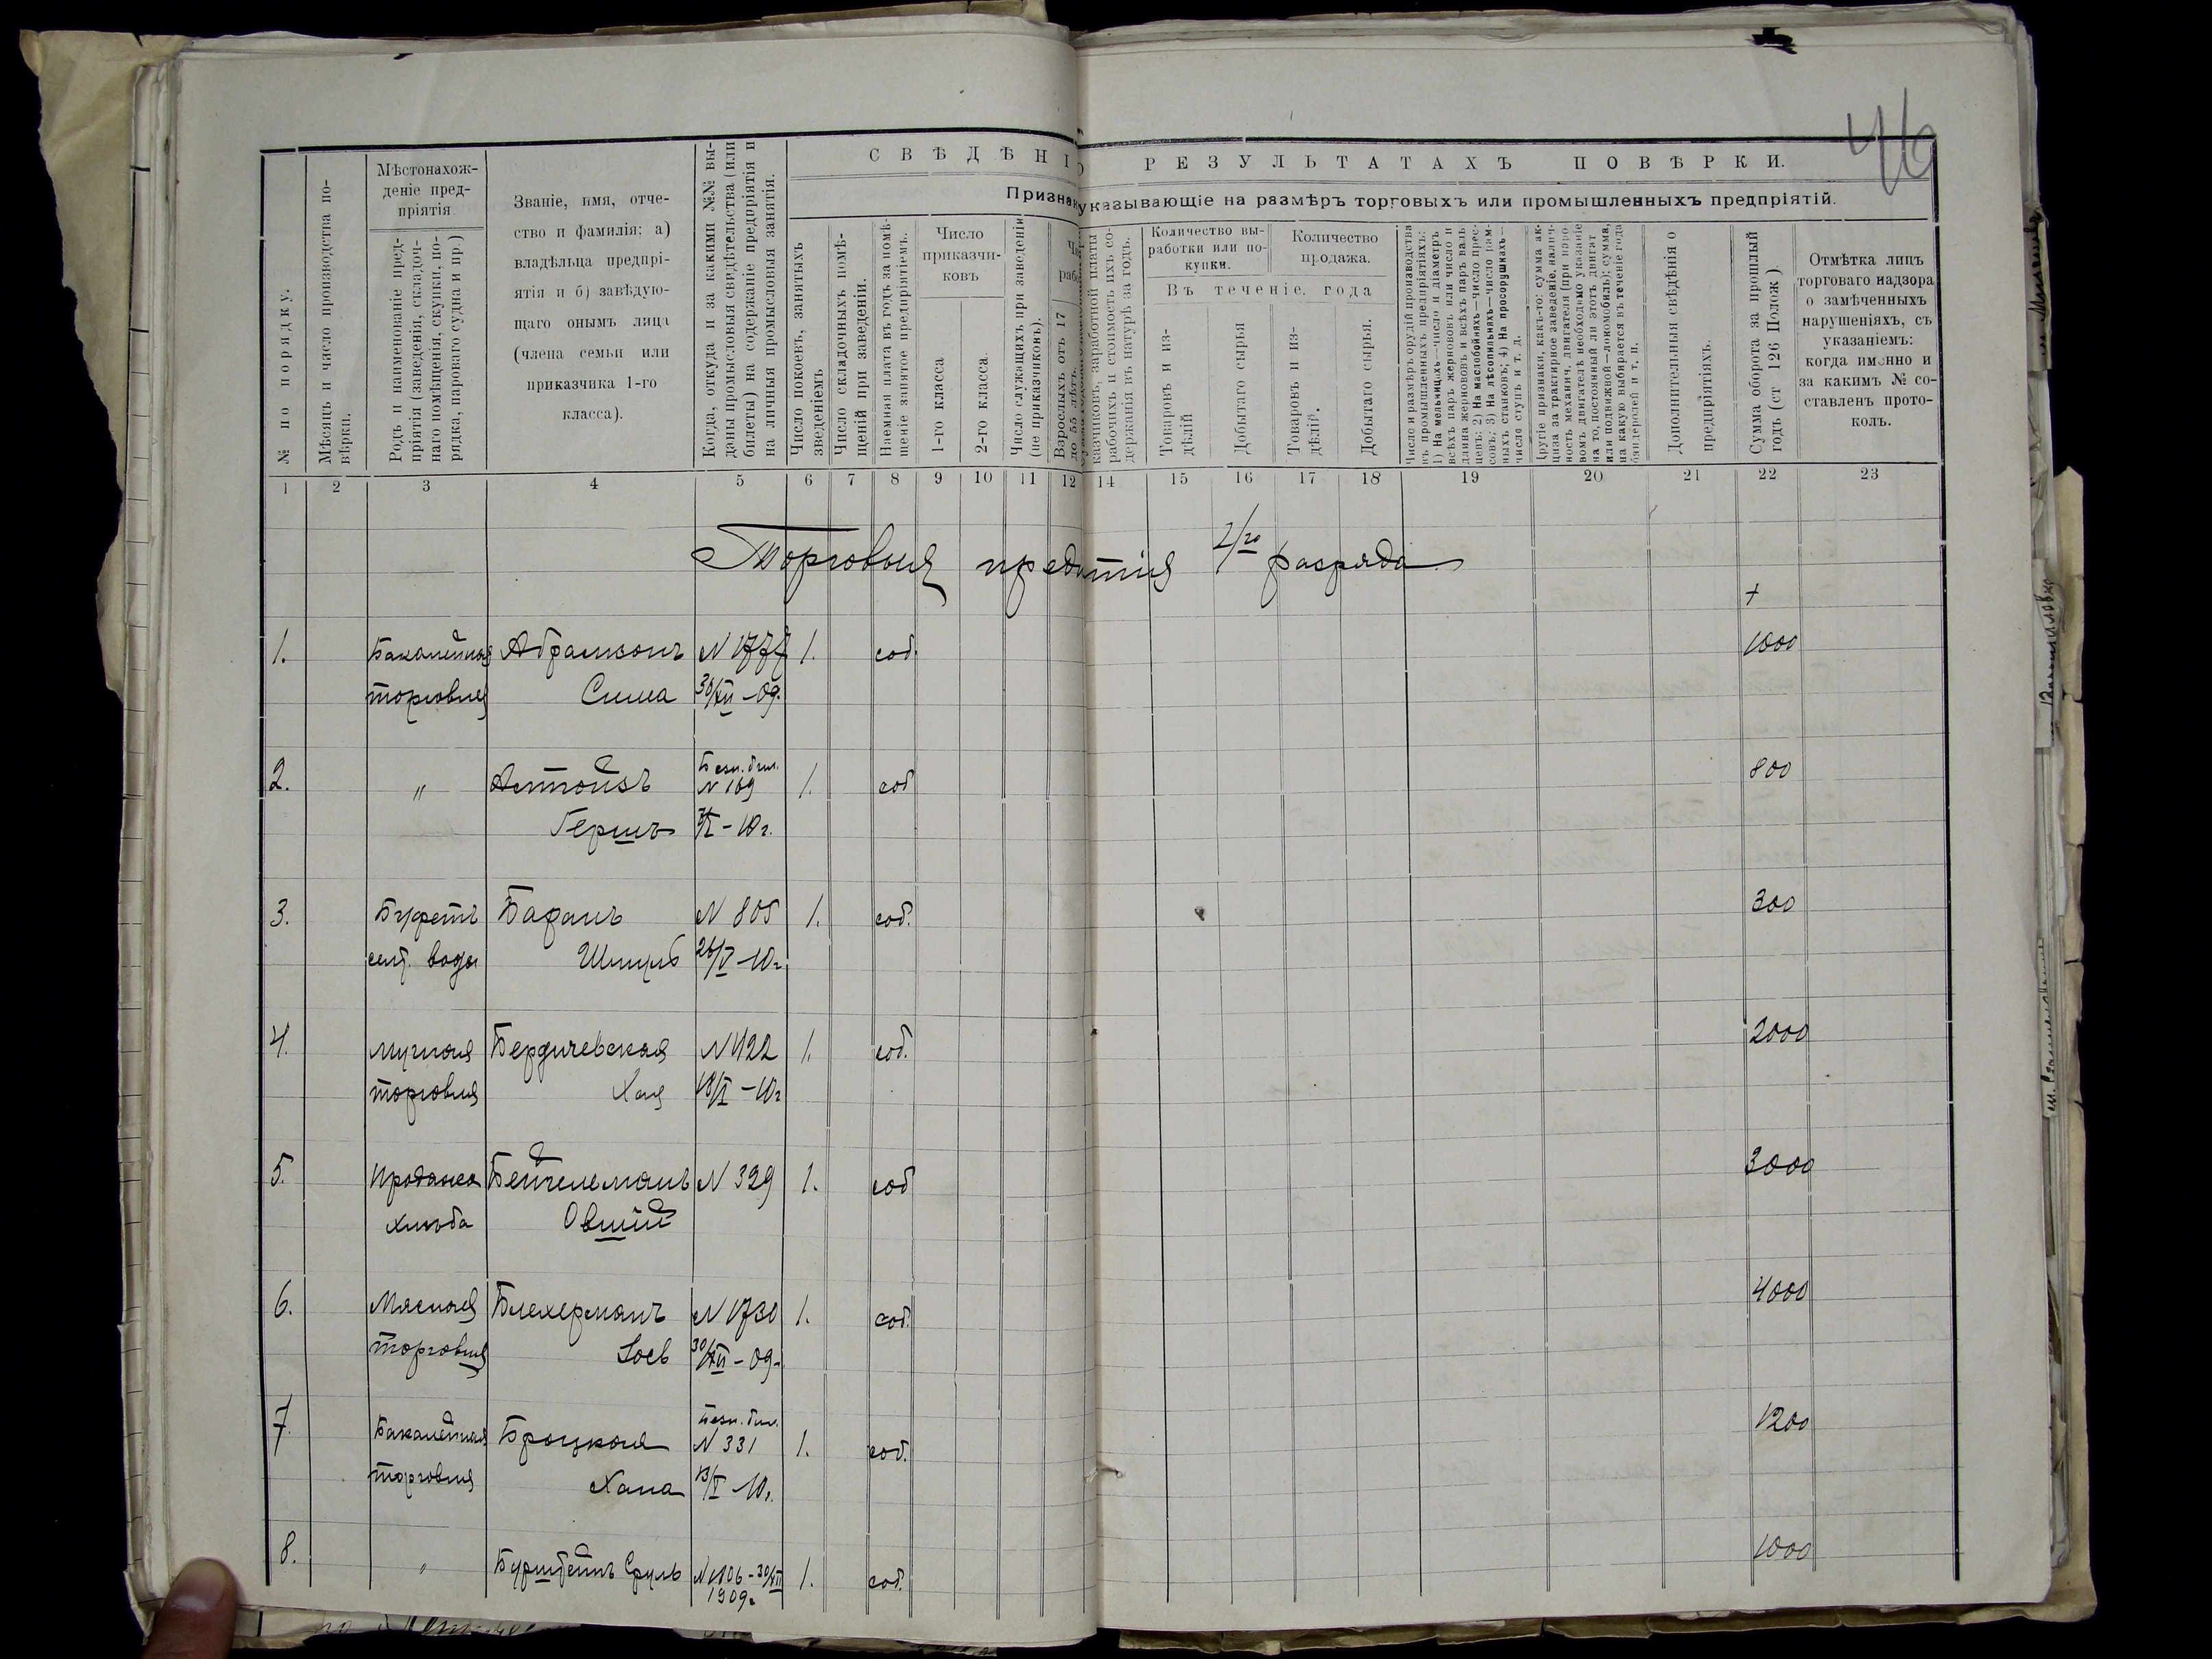 46
СВѢДѢНІ О РЕЗУЛЬТАТАХЪ ПОВѢРКИ.
Признак указывающіе на размѣръ торговыхъ или промышленныхъ предпріятій.
№ по порядку.
Мѣсяцъ и число производства по-
вѣрки.
Мѣстонахож-
деніе пред-
пріятія
Родъ и наименованіе пред-
пріятія (заведенія, складоч-
наго помѣщенія, скупки, по-
рядка, пароваго судна и пр.)
Званіе, имя, отче-
ство и фамилія: а)
владѣльца предпрі-
ятія и б) завѣдую-
щаго онымъ лица
(члена семьи или
приказчика 1-го
класса).
Когда, откуда и за какими №№ вы-
даны промысловыя свидѣтельства (или
билеты) на содержаніе предпріятія и
на личныя промысловыя занятія.
Число покоевъ, занятыхъ
зведеніемъ
Число складочныхъ помѣ-
щеній при заведеніи.
Наемная плата въ годъ за помѣ-
щеніе занятое предпріятіемъ.
Число
приказчи-
ковъ
1-го класса
2-го класса.
Число служащихъ при заведеніи
(не приказчиковъ).
Взрослыхъ отъ 17
до 55 лѣтъ.
казчиковъ, заработной платы
рабочихъ и стоимость ихъ со-
держанія въ натурѣ за годъ.
Количество вы-
работки или по-
купки.
Количество
продажа.
Въ теченіе года
Товаровъ и из-
дѣлій
Добытаго сырья
Товаровъ и из-
дѣлій.
Добытаго сырья.
Число и размѣръ орудій производства
въ промышленныхъ предпріятіяхъ:
1) На мельницахъ—число и діаметръ
всѣхъ паръ жернововъ или число и
длина жернововъ и всѣхъ паръ валь
цевъ; 2) На маслобойняхъ—число прес-
совъ; 3) На лѣсопильняхъ—число рам-
ныхъ станковъ; 4) На просорушкахъ—
число ступъ и т. д.
Другіе признаки, какъ-то: сумма ак-
циза за трактирное заведеніе, налич-
ность механич. двигателя (при паро-
вомъ двигателѣ необходимо указаніе
на то, постоянный ли этотъ двигат
или подвижной—локомобиль); сумма,
на какую выбирается въ теченіе года
бандеролей и т. п.
Дополнительныя свѣдѣнія о
предпріятіяхъ.
Сумма оборота за прошлый
годъ (ст 126 Полож )
Отмѣтка лицъ
торговаго надзора
о замѣченныхъ
нарушеніяхъ, съ
указаніемъ:
когда именно и
за какимъ № со-
ставленъ прото-
колъ.
1 2 3 4 5 6 7 8 9 10 11 12 14 15 16 17 18 19 20 21 22 23
Торговыя предпріятія разряда
+
1. Бакалейная Абрамсонъ N 1777 1. соб. 1000
торговля Сима 30/XII-09.
2. " Астойзъ Безп. бил. N 169 1. соб 800
Гершъ -10 г.
3. Буфетъ Баранъ N 805 1. соб. 300
сельт. воды Шмуль 26/V-10 г.
4. Мучная Бердичевская N 422 1. соб. 2000
торговля Хая -10 г
5. Продажа Бейгельманъ N 329 1. соб 3000
хлѣба Овшій
6. Мясная Блехерманъ N 1730 1. соб. 4000
торговля Іосъ 30/XII-09-
7. Бакалейная Броцкая Безп. бил. N 331 1. соб. 1200
торговля Хана -10 г.
8. " Бурштейнъ Сруль N 1806-30/XII 1909 г 1. соб. 1000